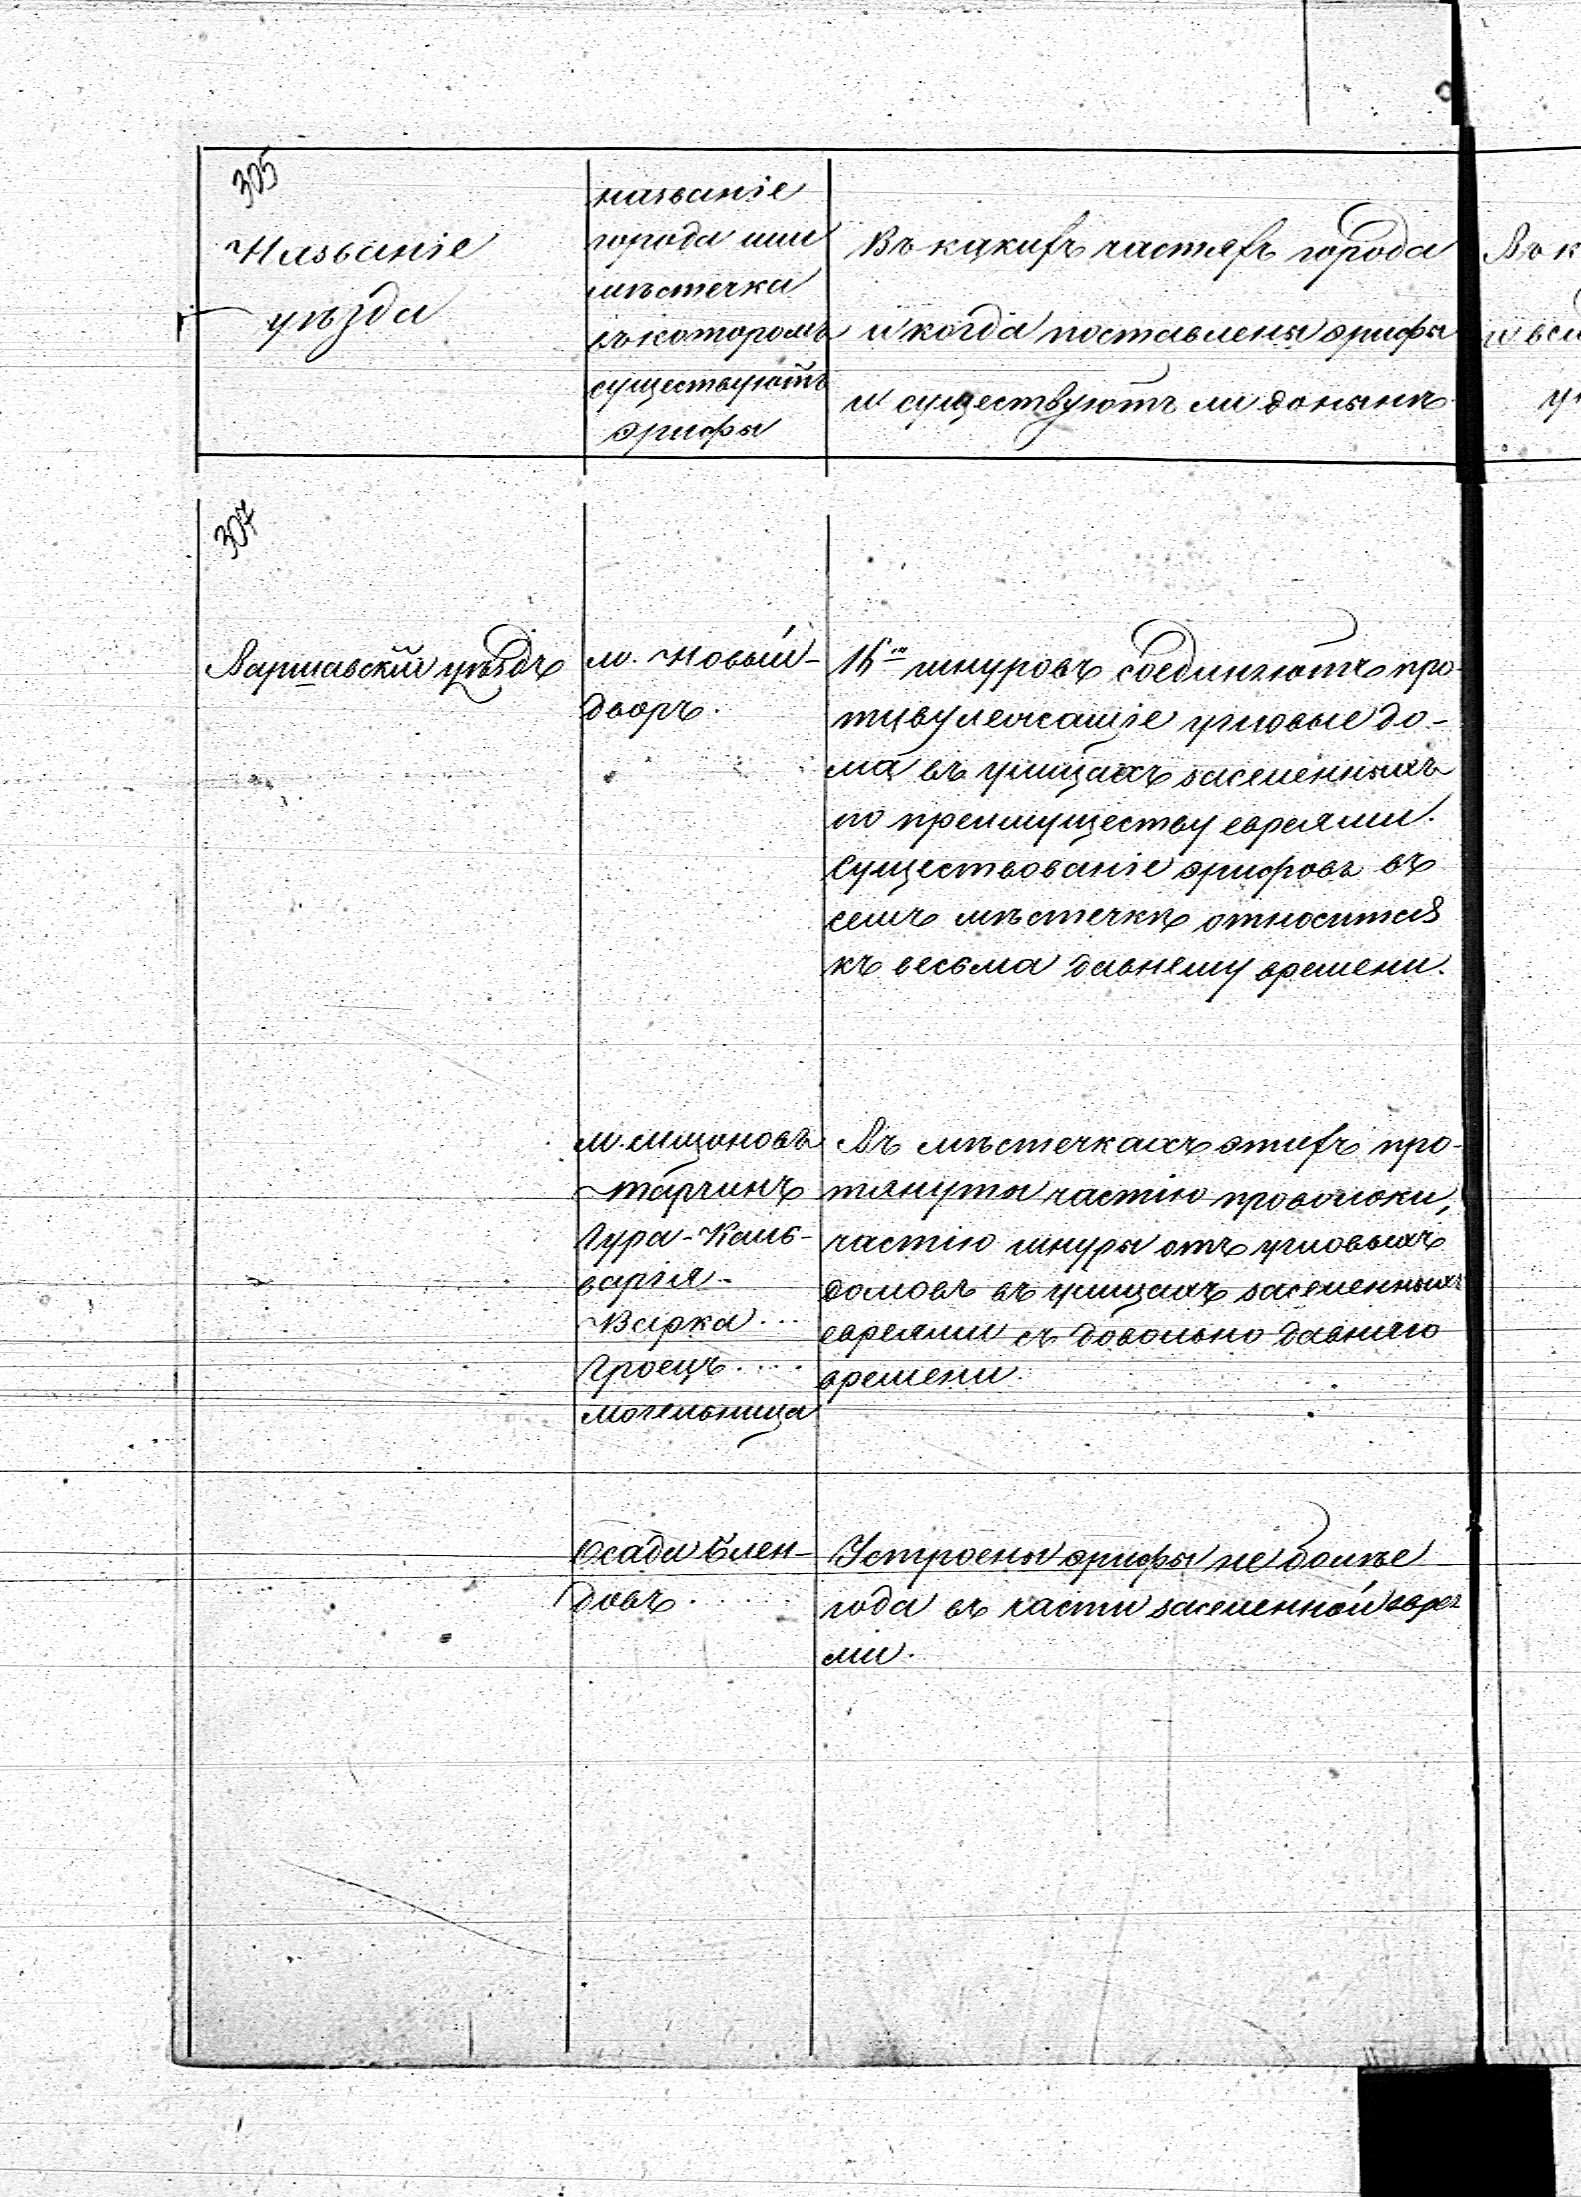 305
Названіе
уѣзда
названіе
города или
мѣстечка
въ которомъ
существуютъ
эрифы
Въ какихъ частяхъ города
и когда поставлены эрифы
и существуютъ ли донынѣ
Въ к
307
Варшавскій уѣздъ
м. Новый-
дворъ.
шнуровъ соединяютъ про-
тивулежащіе угловые до-
ма въ улицахъ заселенныхъ
по преимуществу евреями.
Существованіе эрифовъ въ
семъ мѣстечкѣ относится
къ весьма давнему времени.
м. Мщоновъ
Тарчинъ
Гура-Каль-
варія-
Варка...
Гроецъ....
Могельница
Въ мѣстечкахъ этихъ про-
тянуты частію проволоки,
частію шнуры отъ угловыхъ
домовъ въ улицахъ заселенныхъ
евреями съ довольно давняго
времени.
Осада Блен-
довъ......
Устроены эрифы не болѣе
года въ части заселенной евреs
ми.